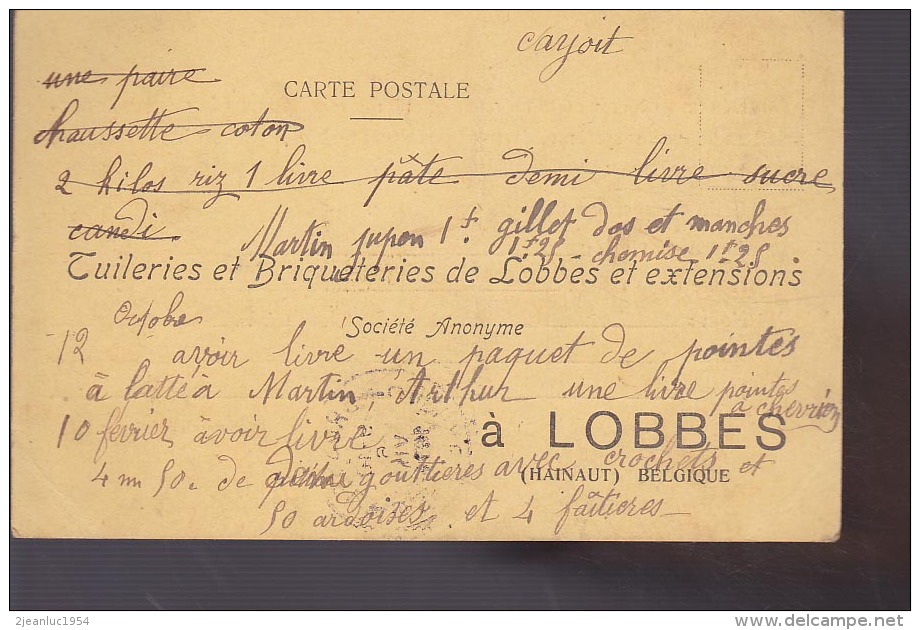 Carjoit
une paire
CARTE POSTALE
chaussette coton
2 kilos riz 1 livre pâte demi livre sucre
candi
Martin jupon 1f. gillet dos et manches
1f25 chemise 1f25
Tuileries et Briqueteries de Lobbes et extensions
Octobre
Société Anonyme
12 avoir livre un paquet de pointes
à latte à Martin Arthur une livre pointes
à chevrier
10 fevrier àvoir livre
à LOBBES
4 m 50. de gouttieres avec crochets et
(HAINAUT) BELGIQUE
50 ardoises et 4 faîtieres
2jeanluc1954
delcampe.net